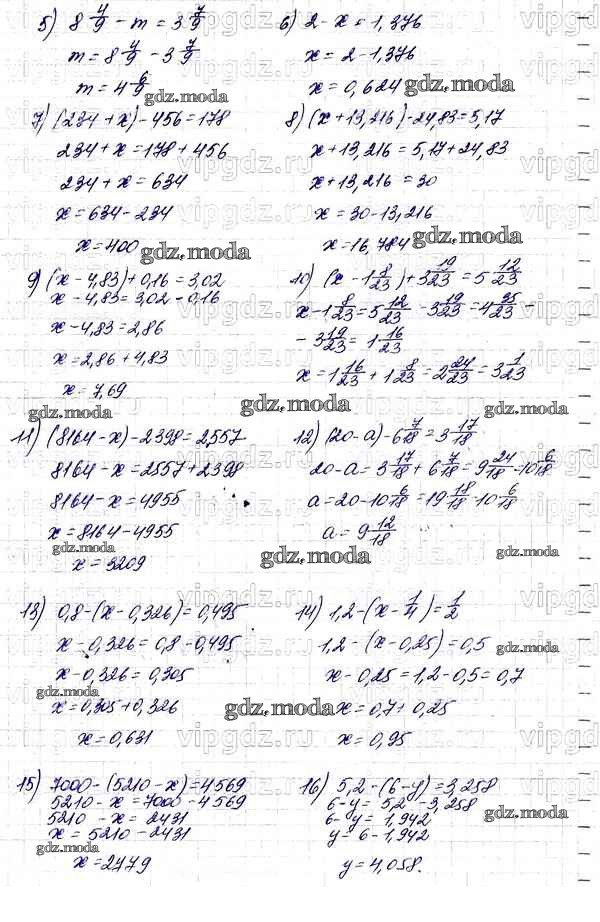 5) 8 4/9 - m = 3 7/9
m = 8 4/9 - 3 7/9
m = 4 6/9
6) 2 - x = 1,376
x = 2 - 1,376
x = 0,624
gdz.moda
gdz.moda
7) (234 + x) - 456 = 178
234 + x = 178 + 456
234 + x = 634
x = 634 - 234
x = 400
gdz.moda
8) (x + 13,216) - 24,83 = 5,17
x + 13,216 = 5,17 + 24,83
x + 13,216 = 30
x = 30 - 13,216
x = 16,784
gdz.moda
9) (x - 4,83) + 0,16 = 3,02
x - 4,83 = 3,02 - 0,16
x - 4,83 = 2,86
x = 2,86 + 4,83
x = 7,69
gdz.moda
10) (x - 1 8/23) + 3 19/23 = 5 12/23
x - 1 8/23 = 5 12/23 - 3 19/23 = 4 35/23 -
- 3 19/23 = 1 16/23
x = 1 16/23 + 1 8/23 = 2 24/23 = 3 1/23
gdz.moda
gdz.moda
11) (8164 - x) - 2398 = 2557
8164 - x = 2557 + 2398
8164 - x = 4955
x = 8164 - 4955
gdz.moda
x = 3209
12) (20 - a) - 6 7/18 = 3 17/18
20 - a = 3 17/18 + 6 7/18 = 9 24/18 = 10 6/18
a = 20 - 10 6/18 = 19 18/18 - 10 6/18
a = 9 12/18
gdz.moda
gdz.moda
13) 0,8 - (x - 0,326) = 0,495
x - 0,326 = 0,8 - 0,495
x - 0,326 = 0,305
gdz.moda
x = 0,305 + 0,326
x = 0,631
14) 1,2 - (x - 1/4) = 1/2
1,2 - (x - 0,25) = 0,5
gdz.moda
x - 0,25 = 1,2 - 0,5 = 0,7
gdz.moda
x = 0,7 + 0,25
x = 0,95
15) 7000 - (5210 - x) = 4569
5210 - x = 7000 - 4569
5210 - x = 2431
x = 5210 - 2431
gdz.moda
x = 2779
16) 5,2 - (6 - y) = 3,258
6 - y = 5,2 - 3,258
6 - y = 1,942
gdz.moda
y = 6 - 1,942
y = 4,058.